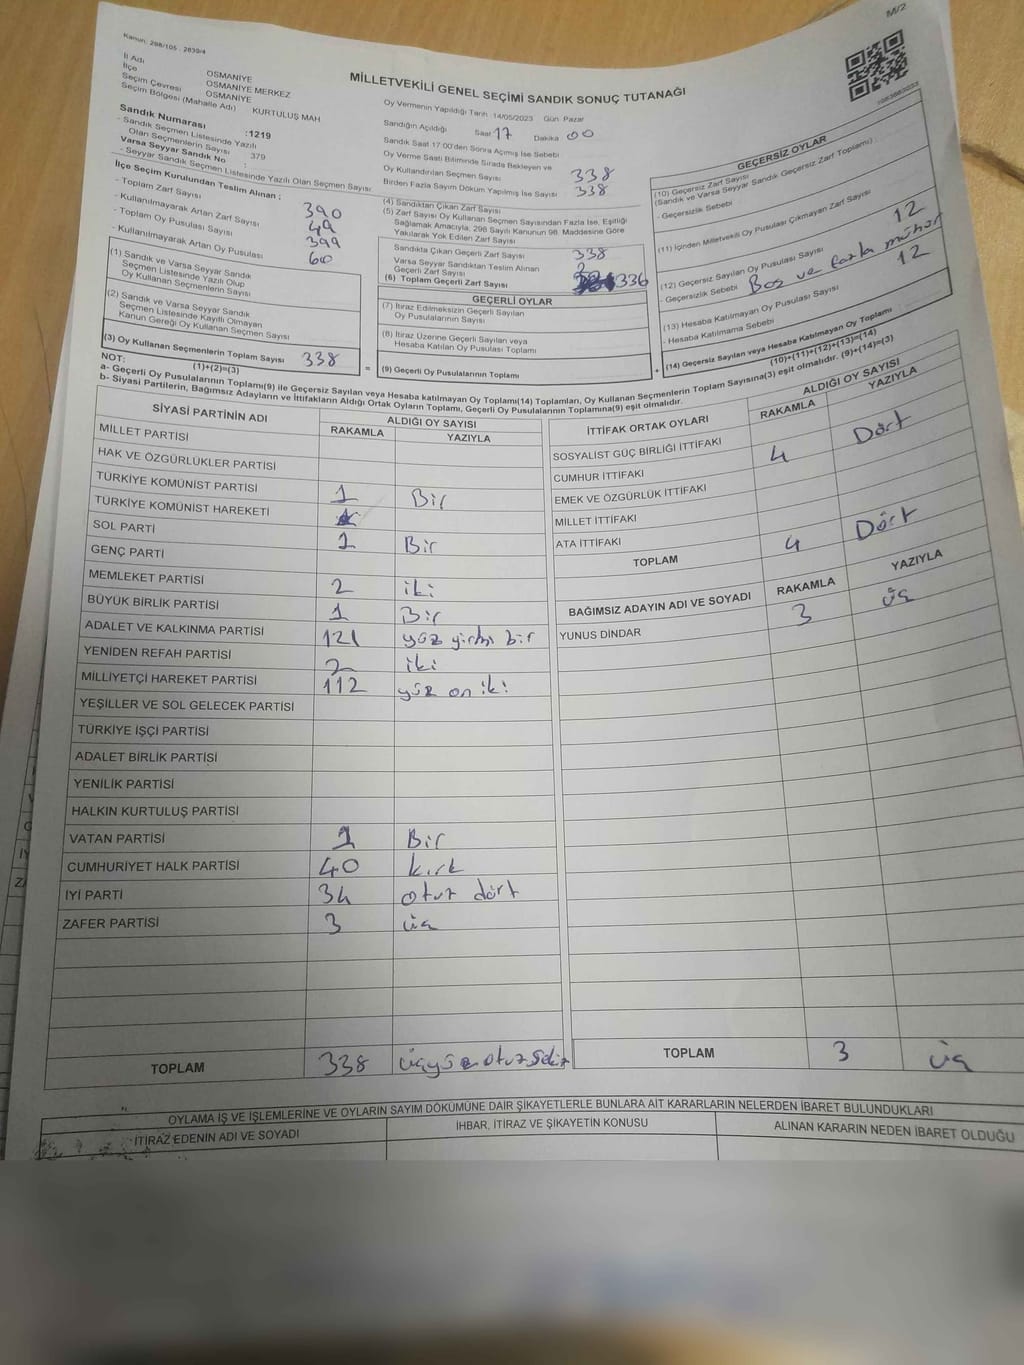 M/2
Kanun: 298/105 , 2839/4
1063663033
MİLLETVEKİLİ GENEL SEÇİMİ SANDIK SONUÇ TUTANAĞI
İl Adı OSMANİYE
İlçe OSMANİYE MERKEZ
Seçim Çevresi OSMANİYE
Seçim Bölgesi (Mahalle Adı) KURTULUŞ MAH
Sandık Numarası :1219
- Sandık Seçmen Listesinde Yazılı
Olan Seçmenlerin Sayısı 379
Varsa Seyyar Sandık No :
- Seyyar Sandık Seçmen Listesinde Yazılı Olan Seçmen Sayısı:
İlçe Seçim Kurulundan Teslim Alınan :
- Toplam Zarf Sayısı 390
- Kullanılmayarak Artan Zarf Sayısı 49
- Toplam Oy Pusulası Sayısı 399
- Kullanılmayarak Artan Oy Pusulası 60
(1) Sandık ve Varsa Seyyar Sandık
Seçmen Listesinde Yazılı Olup
Oy Kullanan Seçmenlerin Sayısı
(2) Sandık ve Varsa Seyyar Sandık
Seçmen Listesinde Kayıtlı Olmayan
Kanun Gereği Oy Kullanan Seçmen Sayısı
(3) Oy Kullanan Seçmenlerin Toplam Sayısı 338
(1)+(2)=(3)
Oy Vermenin Yapıldığı Tarih 14/05/2023 Gün Pazar
Sandığın Açıldığı Saat 17 Dakika 00
Sandık Saat 17:00'den Sonra Açılmış İse Sebebi
Oy Verme Saati Bitiminde Sırada Bekleyen ve
Oy Kullandırılan Seçmen Sayısı 338
Birden Fazla Sayım Döküm Yapılmış İse Sayısı 338
(4) Sandıktan Çıkan Zarf Sayısı
(5) Zarf Sayısı Oy Kullanan Seçmen Sayısından Fazla İse, Eşitliği
Sağlamak Amacıyla, 298 Sayılı Kanunun 98. Maddesine Göre
Yakılarak Yok Edilen Zarf Sayısı
Sandıkta Çıkan Geçerli Zarf Sayısı 338
Varsa Seyyar Sandıktan Teslim Alınan
Geçerli Zarf Sayısı
(6) Toplam Geçerli Zarf Sayısı 336
GEÇERLİ OYLAR
(7) İtiraz Edilmeksizin Geçerli Sayılan
Oy Pusulalarının Sayısı
(8) İtiraz Üzerine Geçerli Sayılan veya
Hesaba Katılan Oy Pusulası Toplamı
= (9) Geçerli Oy Pusulalarının Toplamı
GEÇERSİZ OYLAR
(10) Geçersiz Zarf Sayısı
(Sandık ve Varsa Seyyar Sandık Geçersiz Zarf Toplamı) :
- Geçersizlik Sebebi
(11) İçinden Milletvekili Oy Pusulası Çıkmayan Zarf Sayısı
(12) Geçersiz Sayılan Oy Pusulası Sayısı 12
- Geçersizlik Sebebi Boş ve fazla mühür
(13) Hesaba Katılmayan Oy Pusulası Sayısı 12
- Hesaba Katılmama Sebebi
+ (14) Geçersiz Sayılan veya Hesaba Katılmayan Oy Toplamı
(10)+(11)+(12)+(13)=(14)
NOT:
a- Geçerli Oy Pusulalarının Toplamı(9) ile Geçersiz Sayılan veya Hesaba katılmayan Oy Toplamı(14) Toplamları, Oy Kullanan Seçmenlerin Toplam Sayısına(3) eşit olmalıdır. (9)+(14)=(3)
b- Siyasi Partilerin, Bağımsız Adayların ve İttifakların Aldığı Ortak Oyların Toplamı, Geçerli Oy Pusulalarının Toplamına(9) eşit olmalıdır.
SİYASİ PARTİNİN ADI ALDIĞI OY SAYISI
RAKAMLA YAZIYLA
MİLLET PARTİSİ
HAK VE ÖZGÜRLÜKLER PARTİSİ
TÜRKİYE KOMÜNİST PARTİSİ 1 Bir
TÜRKİYE KOMÜNİST HAREKETİ
SOL PARTİ 1 Bir
GENÇ PARTİ
MEMLEKET PARTİSİ 2 iki
BÜYÜK BİRLİK PARTİSİ 1 Bir
ADALET VE KALKINMA PARTİSİ 121 yüz yirmi bir
YENİDEN REFAH PARTİSİ 2 iki
MİLLİYETÇİ HAREKET PARTİSİ 112 yüz on iki
YEŞİLLER VE SOL GELECEK PARTİSİ
TÜRKİYE İŞÇİ PARTİSİ
ADALET BİRLİK PARTİSİ
YENİLİK PARTİSİ
HALKIN KURTULUŞ PARTİSİ
VATAN PARTİSİ 1 Bir
CUMHURİYET HALK PARTİSİ 40 kırk
İYİ PARTİ 34 otuz dört
ZAFER PARTİSİ 3 üç
TOPLAM 338 üçyüz otuz sekiz
İTTİFAK ORTAK OYLARI ALDIĞI OY SAYISI
RAKAMLA YAZIYLA
SOSYALİST GÜÇ BİRLİĞİ İTTİFAKI
CUMHUR İTTİFAKI 4 Dört
EMEK VE ÖZGÜRLÜK İTTİFAKI
MİLLET İTTİFAKI
ATA İTTİFAKI
TOPLAM 4 Dört
BAĞIMSIZ ADAYIN ADI VE SOYADI RAKAMLA YAZIYLA
YUNUS DİNDAR 3 üç
TOPLAM 3 üç
OYLAMA İŞ VE İŞLEMLERİNE VE OYLARIN SAYIM DÖKÜMÜNE DAİR ŞİKAYETLERLE BUNLARA AİT KARARLARIN NELERDEN İBARET BULUNDUKLARI
İTİRAZ EDENİN ADI VE SOYADI İHBAR, İTİRAZ VE ŞİKAYETİN KONUSU ALINAN KARARIN NEDEN İBARET OLDUĞU